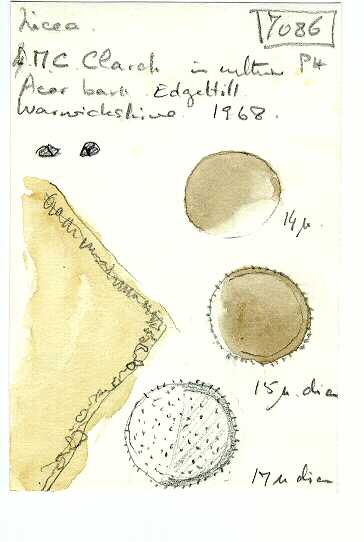 Licea.
7086
M.C. Clark in culture PH
Acer bark Edgehill
Warwickshire 1968.
14 µ.
15 µ. diam
17 µ diam